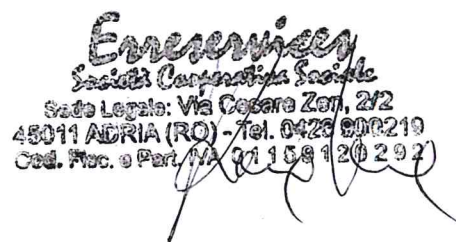 Erreservices
Società Cooperativa Sociale
Sede Legale: Via Cesare Zen, 2/2
45011 ADRIA (RO) - Tel. 0426 900219
Cod. Fisc. e Part. IVA 01159120292